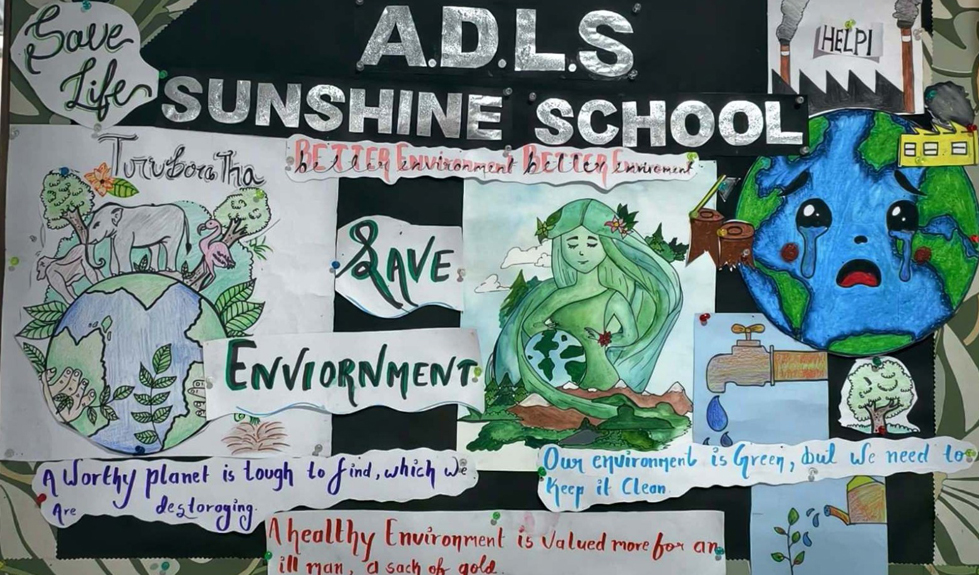 Save
Life
A.D.L.S
SUNSHINE SCHOOL
HELP!
BETTER Environment BETTER Enviroment
better environment better
SAVE
ENVIORNMENT
A Worthy planet is tough to find, which We
Are destoroging.
Our environment is Green, but We need to
Keep it Clean
A healthy Environment is valued more for an
ill man, a sack of gold